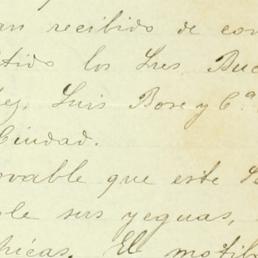 an recibido de con
tido los Sres Buc
ez, Luis Bose y Cª
Ciudad.
ovable que este
le sus yeguas,
hicas. El motiv